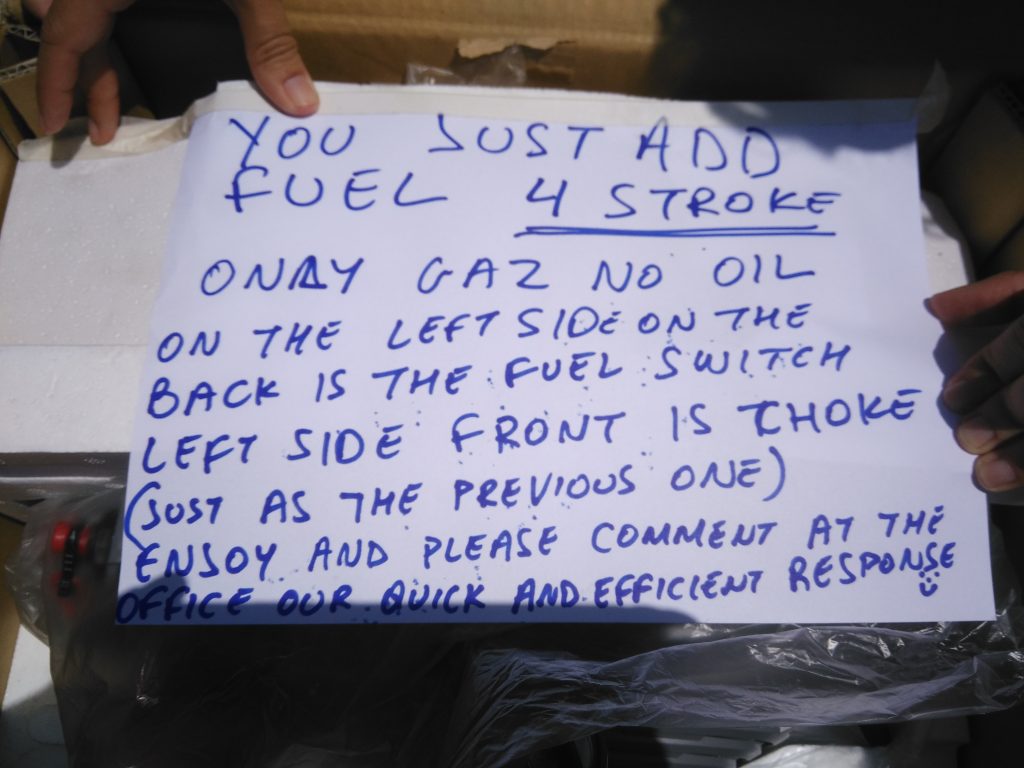 YOU JUST ADD
FUEL 4 STROKE
ONLY GAZ NO OIL
ON THE LEFT SIDE ON THE
BACK IS THE FUEL SWITCH
LEFT SIDE FRONT IS CHOKE
(JUST AS THE PREVIOUS ONE)
ENJOY AND PLEASE COMMENT AT THE
OFFICE OUR QUICK AND EFFICIENT RESPONSE